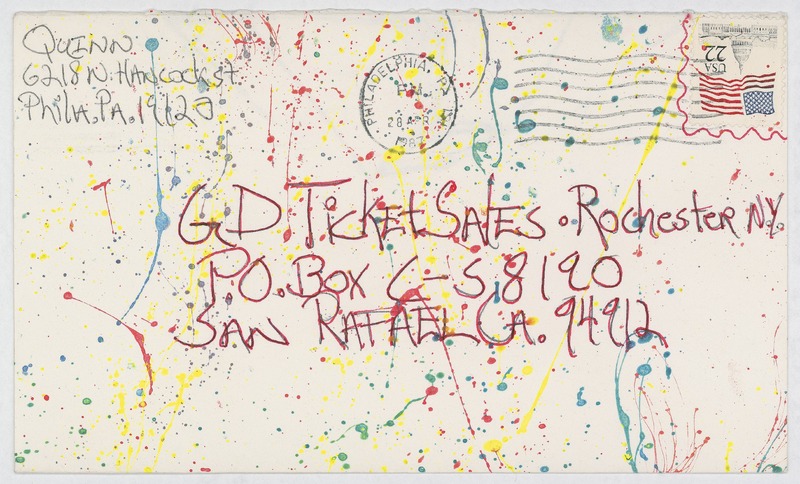 QUINN
6218 N. HANCOCK ST
PHILA. PA. 19120
PHILADELPHIA, PA
PM
28 APR
USA
22
GD TICKET SALES . ROCHESTER N.Y.
P.O. BOX C-S 8190
SAN RAFAEL CA. 94912